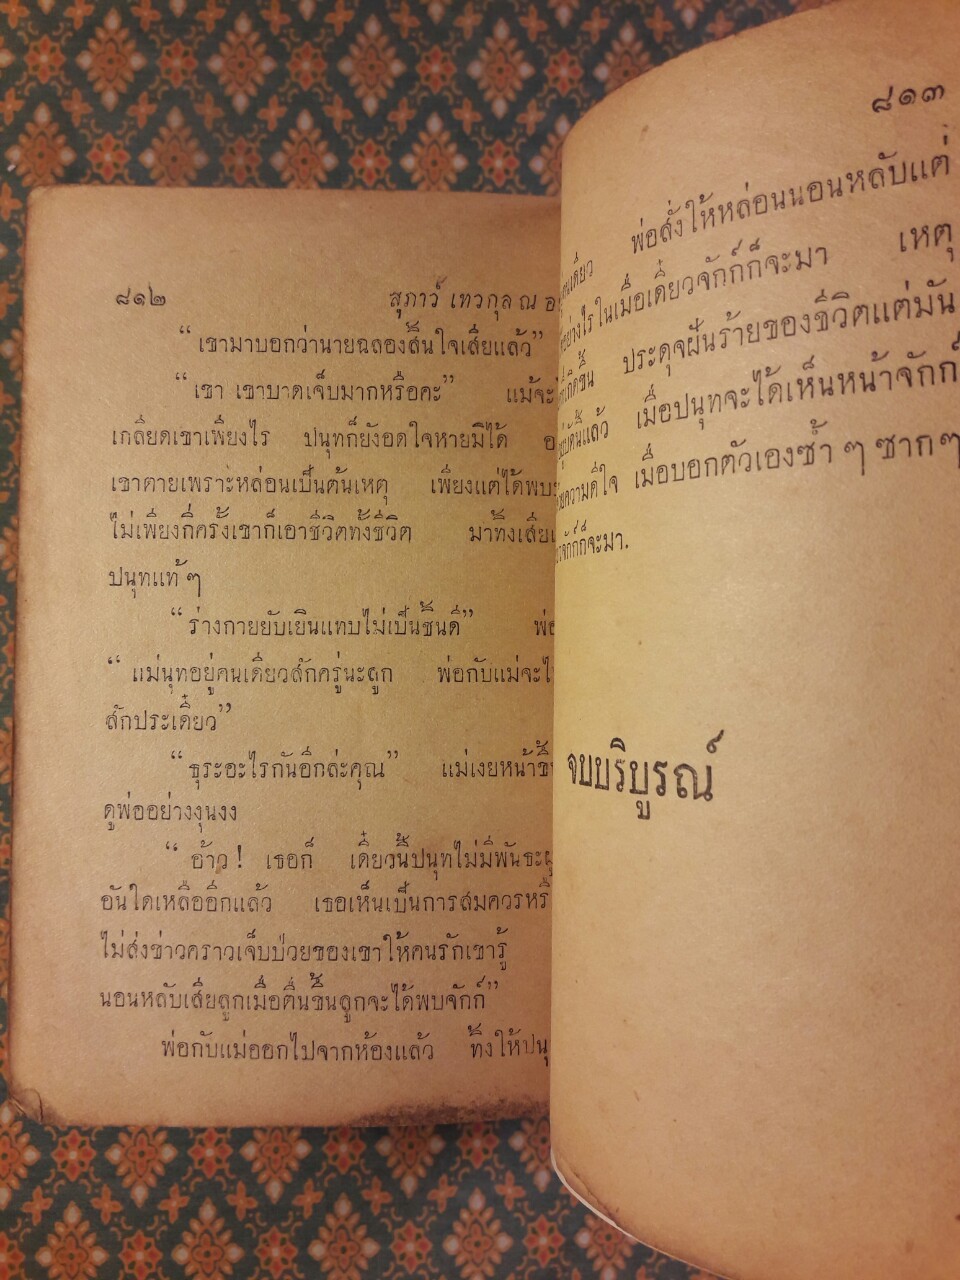 ๘๑๒ สุภาว์ เทวกุล ณ
“เขามาบอกว่านายฉลองสิ้นใจเสียแล้ว”
“เขา เขาบาดเจ็บมากหรือคะ” แม้จะ
เกลียดเขาเพียงไร ปนุทก็ยังอดใจหายมิได้
เขาตายเพราะหล่อนเป็นต้นเหตุ เพียงแต่ได้พบ
ไม่เพียงกี่ครั้งเขาก็เอาชีวิตทั้งชีวิต มาทิ้งเสีย
ปนุทแท้ ๆ
“ร่างกายยับเยินแทบไม่เป็นชิ้นดี”
“แม่นุทอยู่คนเดียวสักครู่นะลูก พ่อกับแม่จะ
สักประเดี๋ยว”
“ธุระอะไรกันอีกล่ะคุณ” แม่เงยหน้าขึ้น
ดูพ่ออย่างงุนงง
“อ้าว! เธอก็ เดี๋ยวนี้ปนุทไม่มีพันธะ
อันใดเหลืออีกแล้ว เธอเห็นเป็นการสมควรหรื
ไม่ส่งข่าวคราวเจ็บป่วยของเขาให้คนรักเขารู้
นอนหลับเสียลูกเมื่อตื่นขึ้นลูกจะได้พบจักก์”
พ่อกับแม่ออกไปจากห้องแล้ว ทิ้งให้ปนุ
๘๑๓
คนเดียว พ่อสั่งให้หล่อนนอนหลับแต่
อย่างไรในเมื่อเดี๋ยวจักก์ก็จะมา เหตุ
เกิดขึ้น ประดุจฝันร้ายของชีวิตแต่มัน
แล้ว เมื่อปนุทจะได้เห็นหน้าจักก์
ความดีใจ เมื่อบอกตัวเองซ้ำ ๆ ซาก ๆ
จักก์ก็จะมา.
จบบริบูรณ์